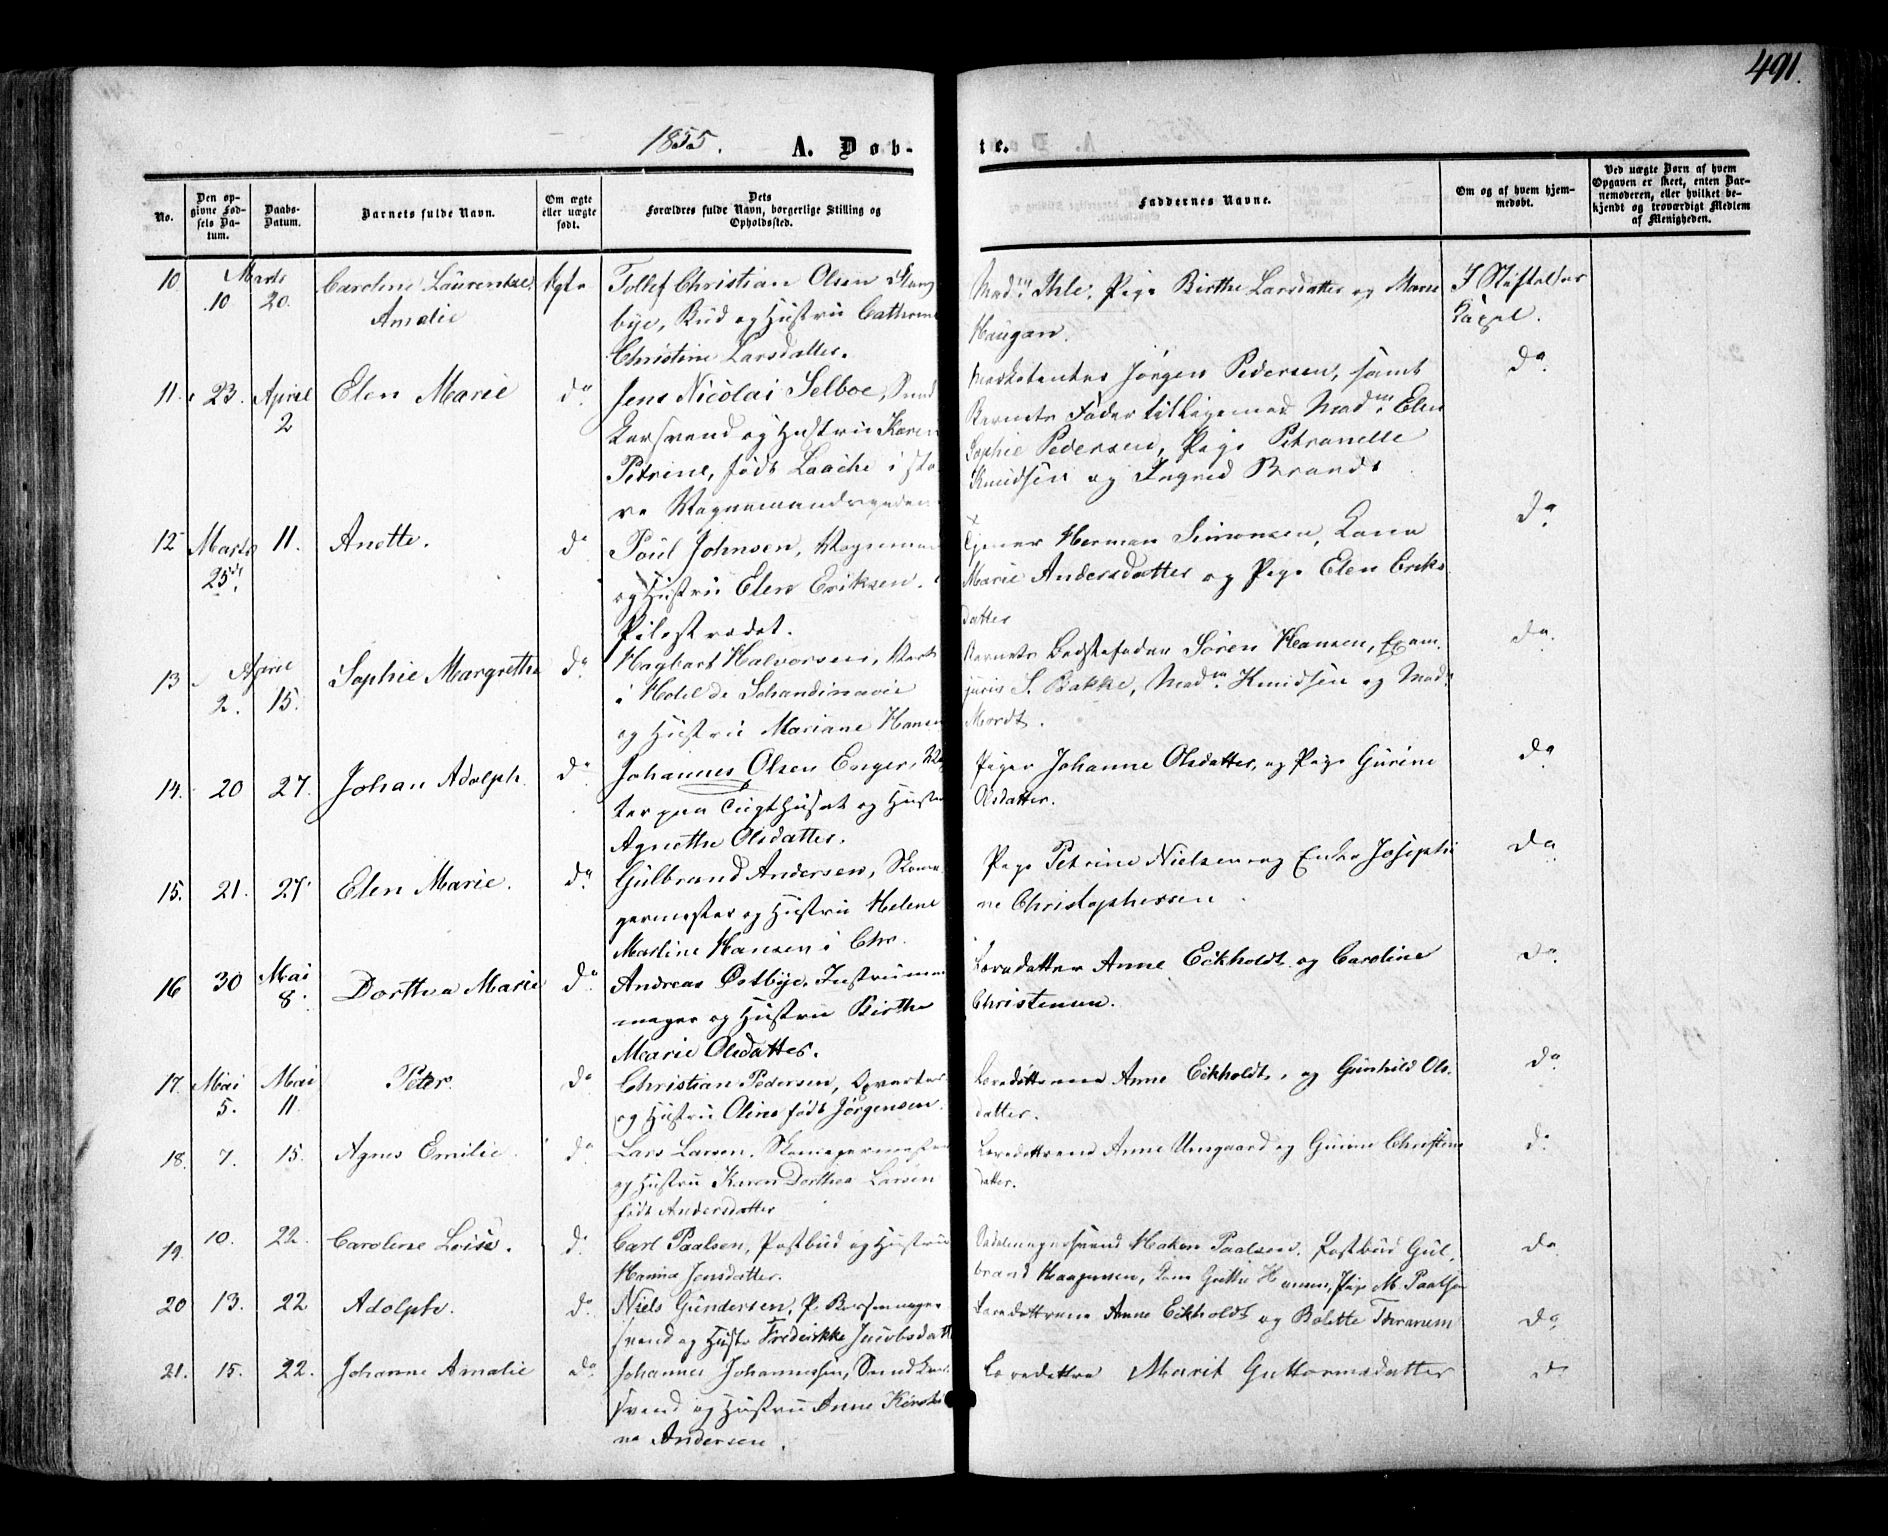 491.
1855. A. Døb-
te.
No.
Den op-
givne Fød-
sels Da-
tum.
Daabs-
Datum.
Barnets fulde Navn.
Om ægte
eller uægte
født.
Dets
Forældres fulde Navn, borgerlige Stilling og
Opholdssted.
Faddernes Navne.
Om og af hvem hjem-
medøbt.
Ved uægte Børn af hvem
Opgaven er skeet, enten Bar-
nemoderen, eller hvilket be-
kjendt og troværdigt Medlem
af Menigheden.
10 Marts 10 20. Caroline Laurentze
Amalie
Tollef Christian Olsen
bye, Bud og Hustru Cathrine
Christine Larsdatter.
Ihle, Pige Birthe Larsdatter og Marie
Haugan.
I Stiftelsens
Kapel.
11. 23. April 2 Elen Marie do.
Jens Nicolai Selboe, Sned
kersvend og Hustru Karen
Petrine, født Laache i sto
re Vognmandsgaden
Marketenter Jørgen Pedersen, samt
Barnets Fader tilligemed Madm. Elen
Sophie Pedersen, Pige Petranelle
Knudsen og Ingred Brandt
do.
12 Marts 25de 11. Anette. do
Poul Johnsen, Vognmand
og Hustru Elen Eriksen. i
Pilestrædet.
Tjener Herman Simonsen, Kone
Marie Andersdatter og Pige Elen Eriks
datter
do
13 April 2. 15. Sophie Margrethe do.
Hagbart Halvorsen, Vert
i Hotel de Schandinavie
og Hustru Mariane Hansen
Barnets Bedstefader Søren Hansen, Exam.
juris S. Bakke, Madm. Knudsen og Mad.
Mordt.
do.
14. 20 27. Johan Adolph. do
Johannes Olsen Enger, Vag
ter paa Tugthuset og Hustru
Agnethe Olsdatter.
Piger Johanne Olsdatter, og Pige Gurine
Olsdatter.
do
15. 21. 27 Elen Marie. do.
Gulbrand Andersen, Skoma
germester og Hustru Helene
Martine Hansen i Chr.
Pige Petrine Nielsen og Enke Josephi
ne Christophersen
do
16 30 Mai 8. Dorthea Marie do
Andreas Østbye, Instrument
mager og Hustru Birthe
Marie Olsdatter.
Læredøttre Anne Eckholdt og Caroline
Christensen.
do
17. Mai 5. Mai 11. Peter. do
Christian Pedersen,
og Hustru Oline født Jørgensen.
Læredøttrene Anne Eckholdt, og Gunhild Ols-
datter.
do
18. 7. 15. Agnes Emilie do
Lars Larsen, Skomagermester
og Hustru Karen Dorthea Larsen
født Andersdatter
Læredøttrene Anne Ursgaard og Gunne Christens
datter.
do
19. 10. 22. Caroline Loise. do
Carl Paalsen, Postbud og Hustru
Hanna Jensdatter.
Sadelmagersvend Haken Paalsen, Postbud Gul
brand Haagensen, Kone Grethe Hansen, Pige M. Paalsen
do
20 13. 22 Adolph. do
Niels Gundersen, P. Børsemager
svend og Hustr. Frederikke Jacobsdatt
Læredøttrene Anne Eckholdt og Bolette
do
21. 15. 22. Johanne Amalie do
Johannes Johannessen, Snedker
svend og Hustru Anne Kirsti
ne Andersen.
Læredøttre Marit Guttormsdatter
do